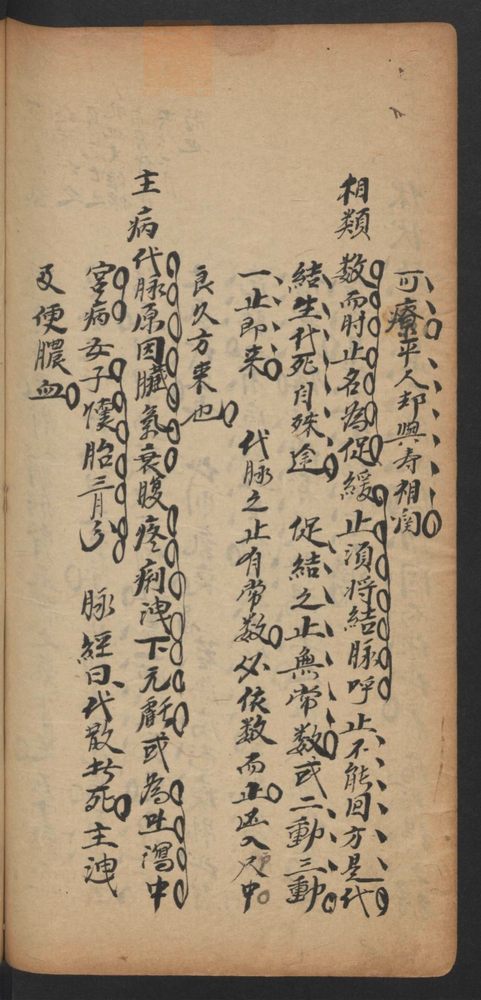 可療平人却與寿相関
相類 数而时止名為促緩止須将結脉呼止不能回方是代
結生代死自殊途 促結之止無常数或二動三動
一止即来 代脉之止有常数必依数而止还入尺中
良久方来也
主病代脉原因臓氣衰腹疼痢洩下元虧或為吐瀉中
宮病女子懐胎三月兮 脉經曰代散者死主洩
及便膿血